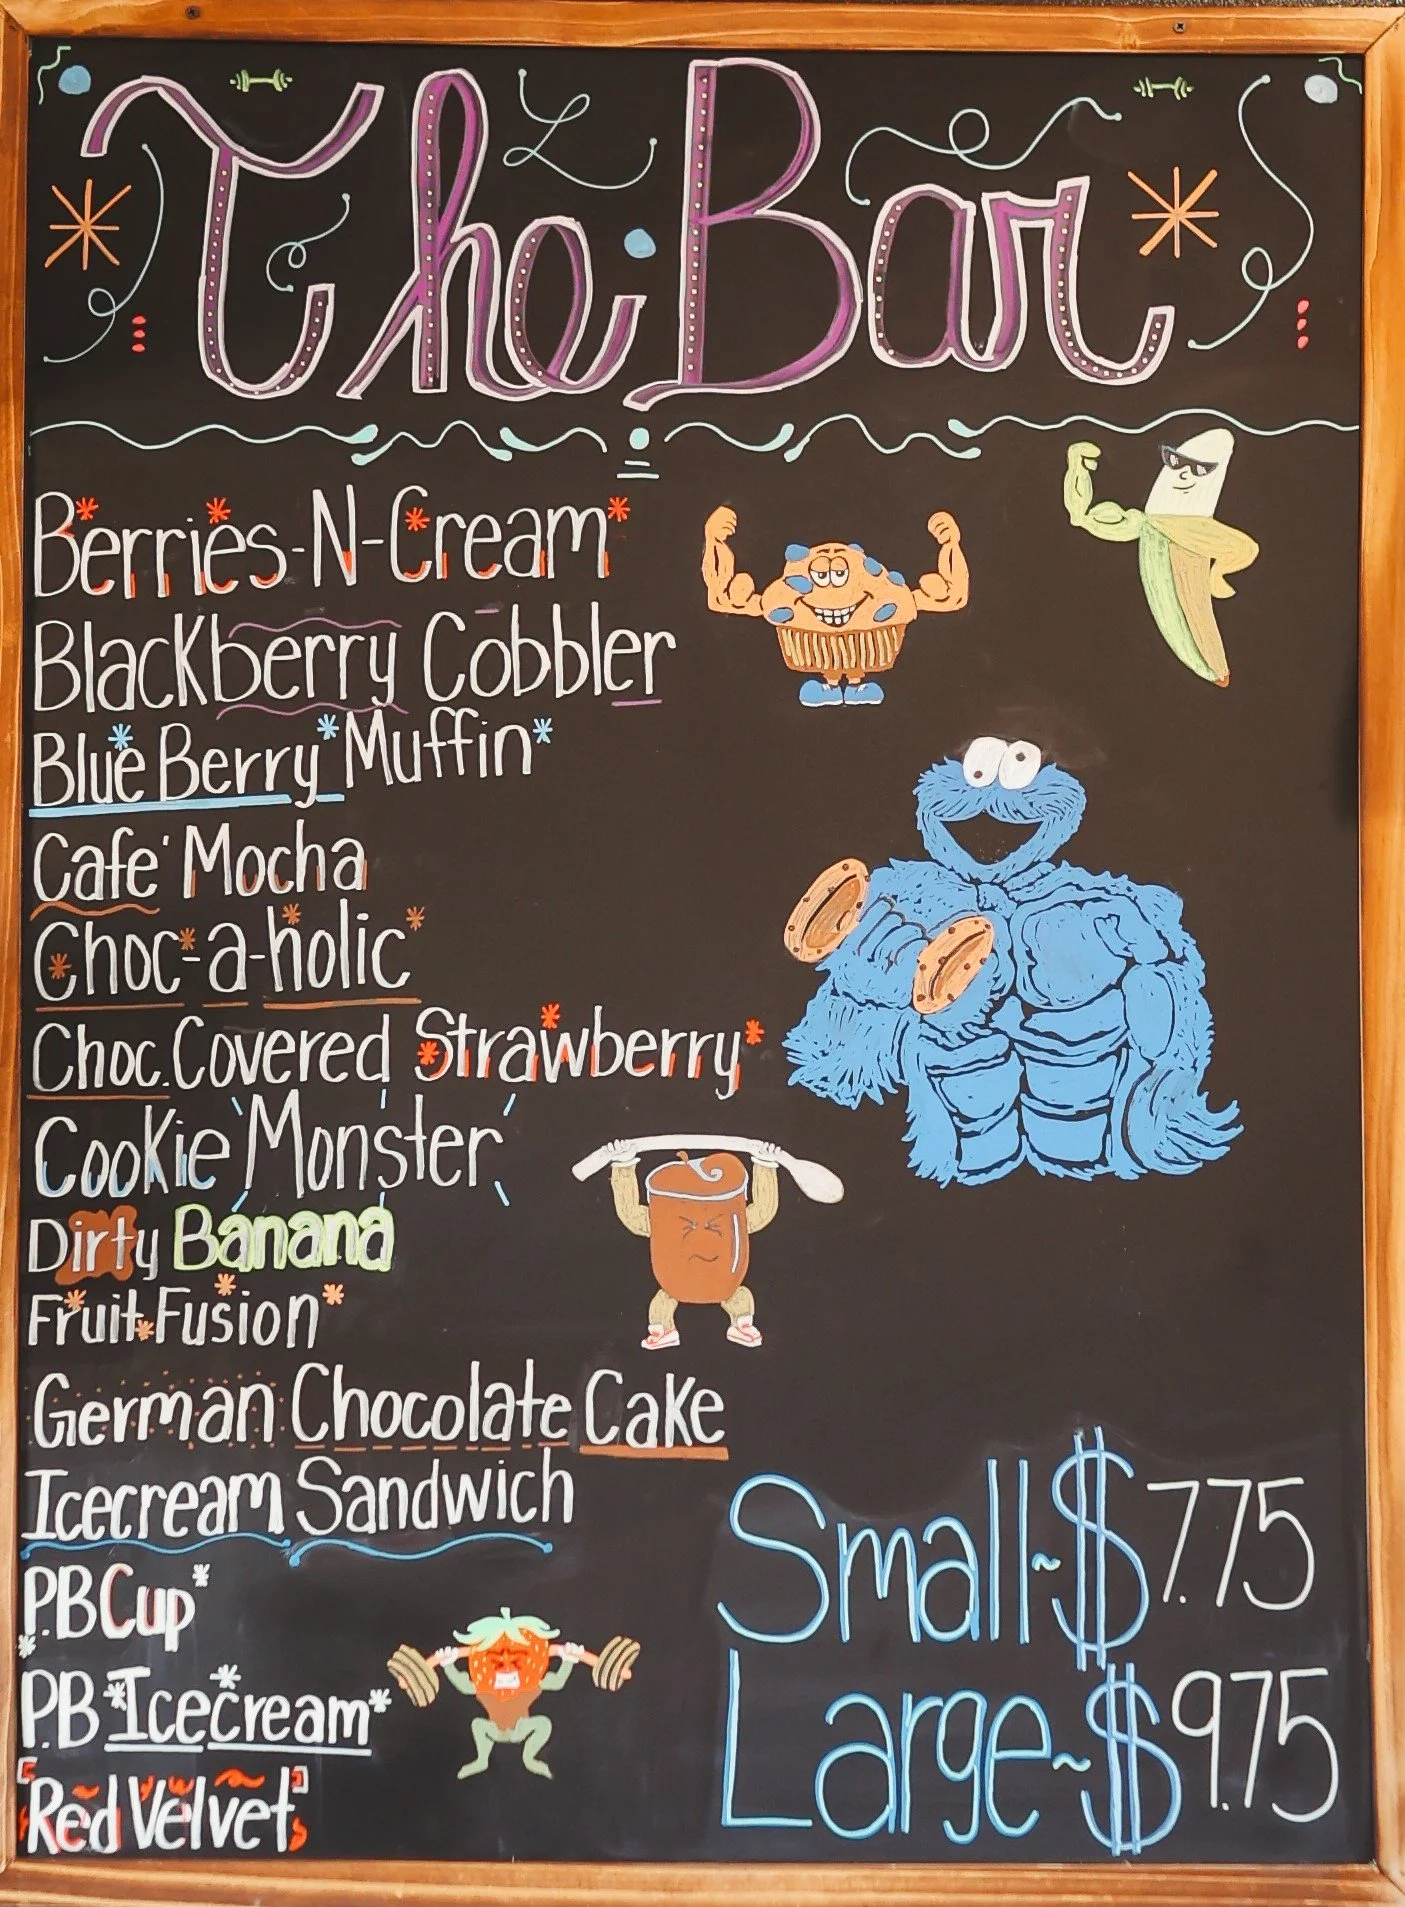 The Bar
Berries-N-Cream
Blackberry Cobbler
Blue Berry Muffin
Cafe' Mocha
Choc-a-holic
Choc. Covered Strawberry
Cookie Monster
Dirty Banana
Fruit Fusion
German Chocolate Cake
Icecream Sandwich
P.B Cup
P.B Icecream
Red Velvet
Small ~ $7.75
Large ~ $9.75